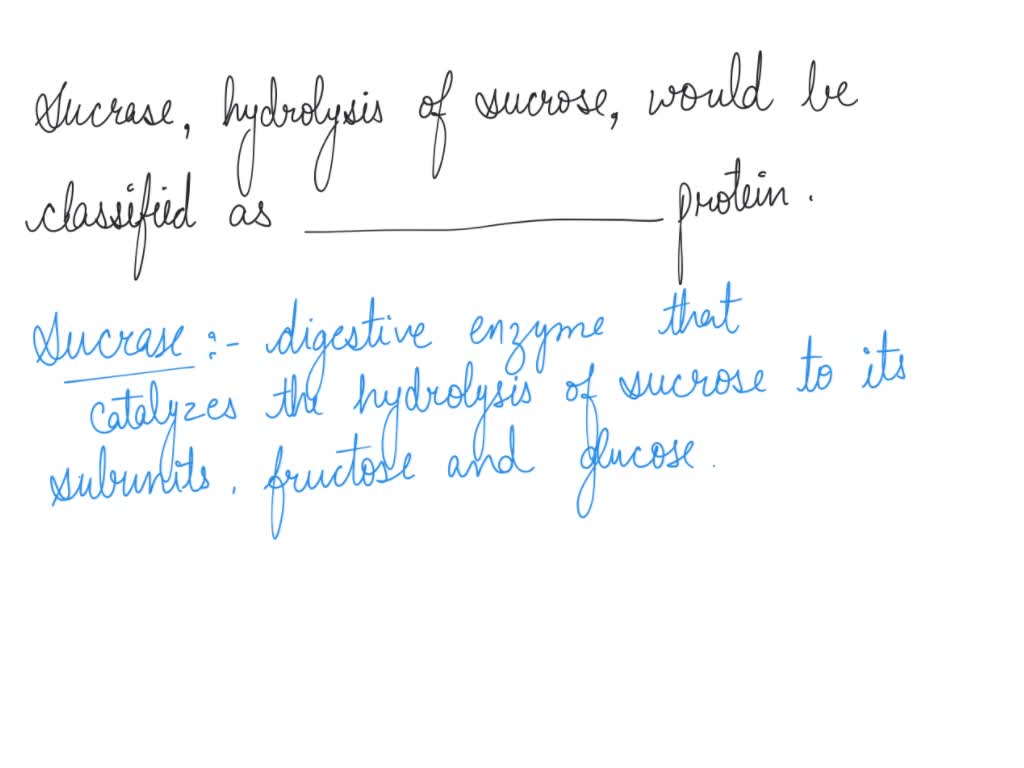 Sucrase, hydrolysis of sucrose, would be
classified as __________ protein.
Sucrase :- digestive enzyme that
catalyzes the hydrolysis of sucrose to its
subunits, fructose and glucose.